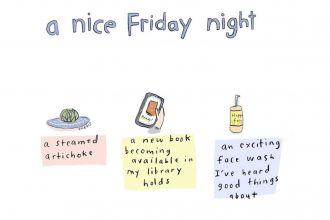 a nice Friday night
a steamed
artichoke
a new book
becoming
available in
my library
holds
an exciting
face wash
I've heard
good things
about